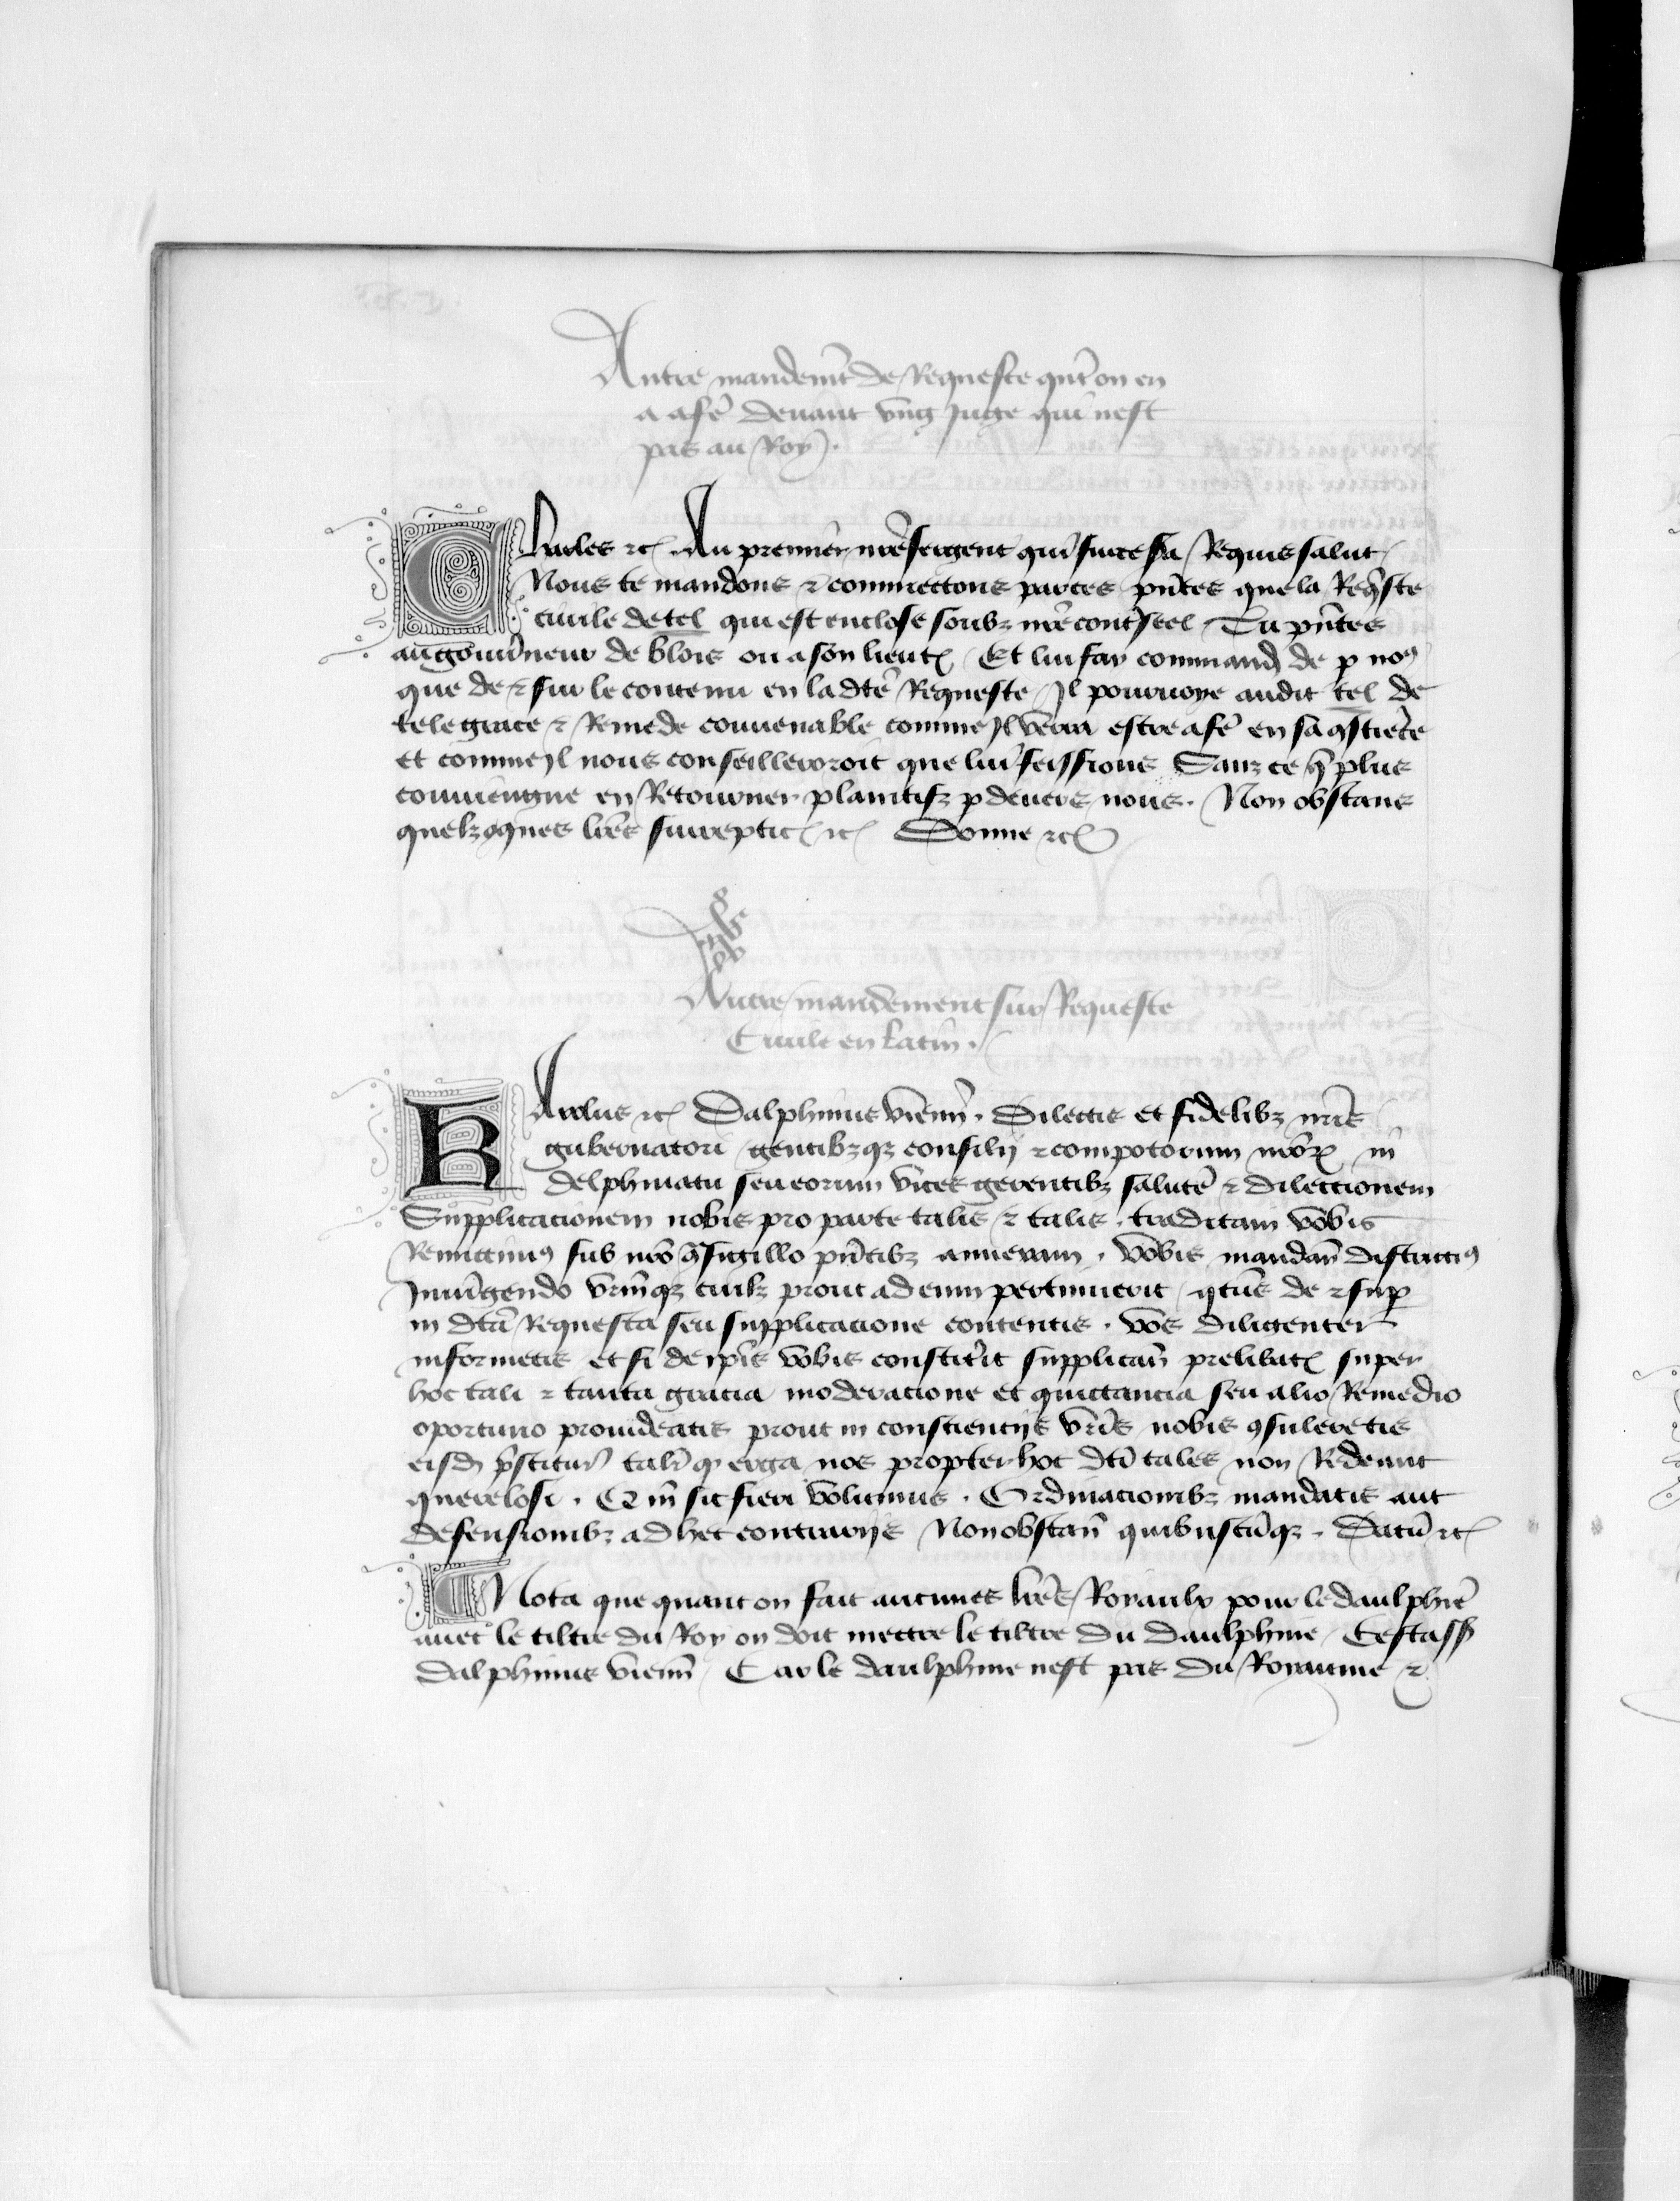 Autre mandemt de Requeste qnt on en
a afe deuant vng Juge qui nest
pas au Roy.
Charles etc Au premier nre sergent qui sur ce sera Requis salut
Nous te mandons & commectons par ces pntes que la Reqste
ciuile de tel qui est enclose soubz nre contseel Tu pntes
au gouuneur de blois ou a son lieut Et lui fay command de p nos
que de & sur le contenu en la dte Requeste Il pouruoye audit tel de
tele grace & Remede conuenable comme Il verra estre afe en sa constiece
et comme Il nous conseilleroit que lui feissions Sanz ce q plus
conuiengne en Retourner plaintifz p deuers nous. Non obstans
quelzcques lres surreptic etc Donne etc
Autre mandement sur Requeste
Ciuile en latin.
Karolus etc Dalphinus vienn. Dilectis et fidelibz nris
gubernatori gentibzqz consilij & compotorum nror in
delphinatu seu eorum vices gerentibz salute & dilectionem
Supplicacionem nobis pro parte talis & talis traditam vobis
Remittimus sub nro cosigillo pntibz annexam. vobis mandan districtius
Iniungendo vrmqz cuilz prout ad eum pertinuerit qtus de & sup
in dta Requesta seu supplicacione contentis. vos diligenter
informetis et si de ipis vobis constiterit supplican prelibat super
hoc tali & tanta gracia moderacione et quictancia seu alio Remedio
oportuno prouideatis prout in consciencijs vris nobis csuleretis
eisd pstitur talit q erga nos propter hoc dti tales non Redeant
querelosi. Qm sic fieri volumus. Ordinacionibz mandatis aut
defensionibz ad hec contrarijs Nonobstan quibuscuqz. Datu etc
Nota que quant on fait aucunes lres Royaulx pour le daulphine
auec le tiltre du Roy on doit mettre le tiltre du daulphine Cestass
dalphinus vienn Car le daulphine nest pas du Royaume &